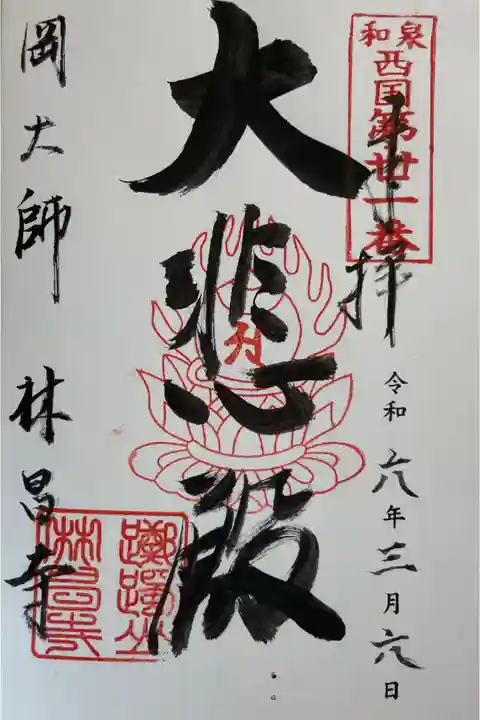 和泉
西国第卄一番
奉拝
令和六年三月六日
大悲殿
岡大師 林昌寺
躑躅山
林昌寺